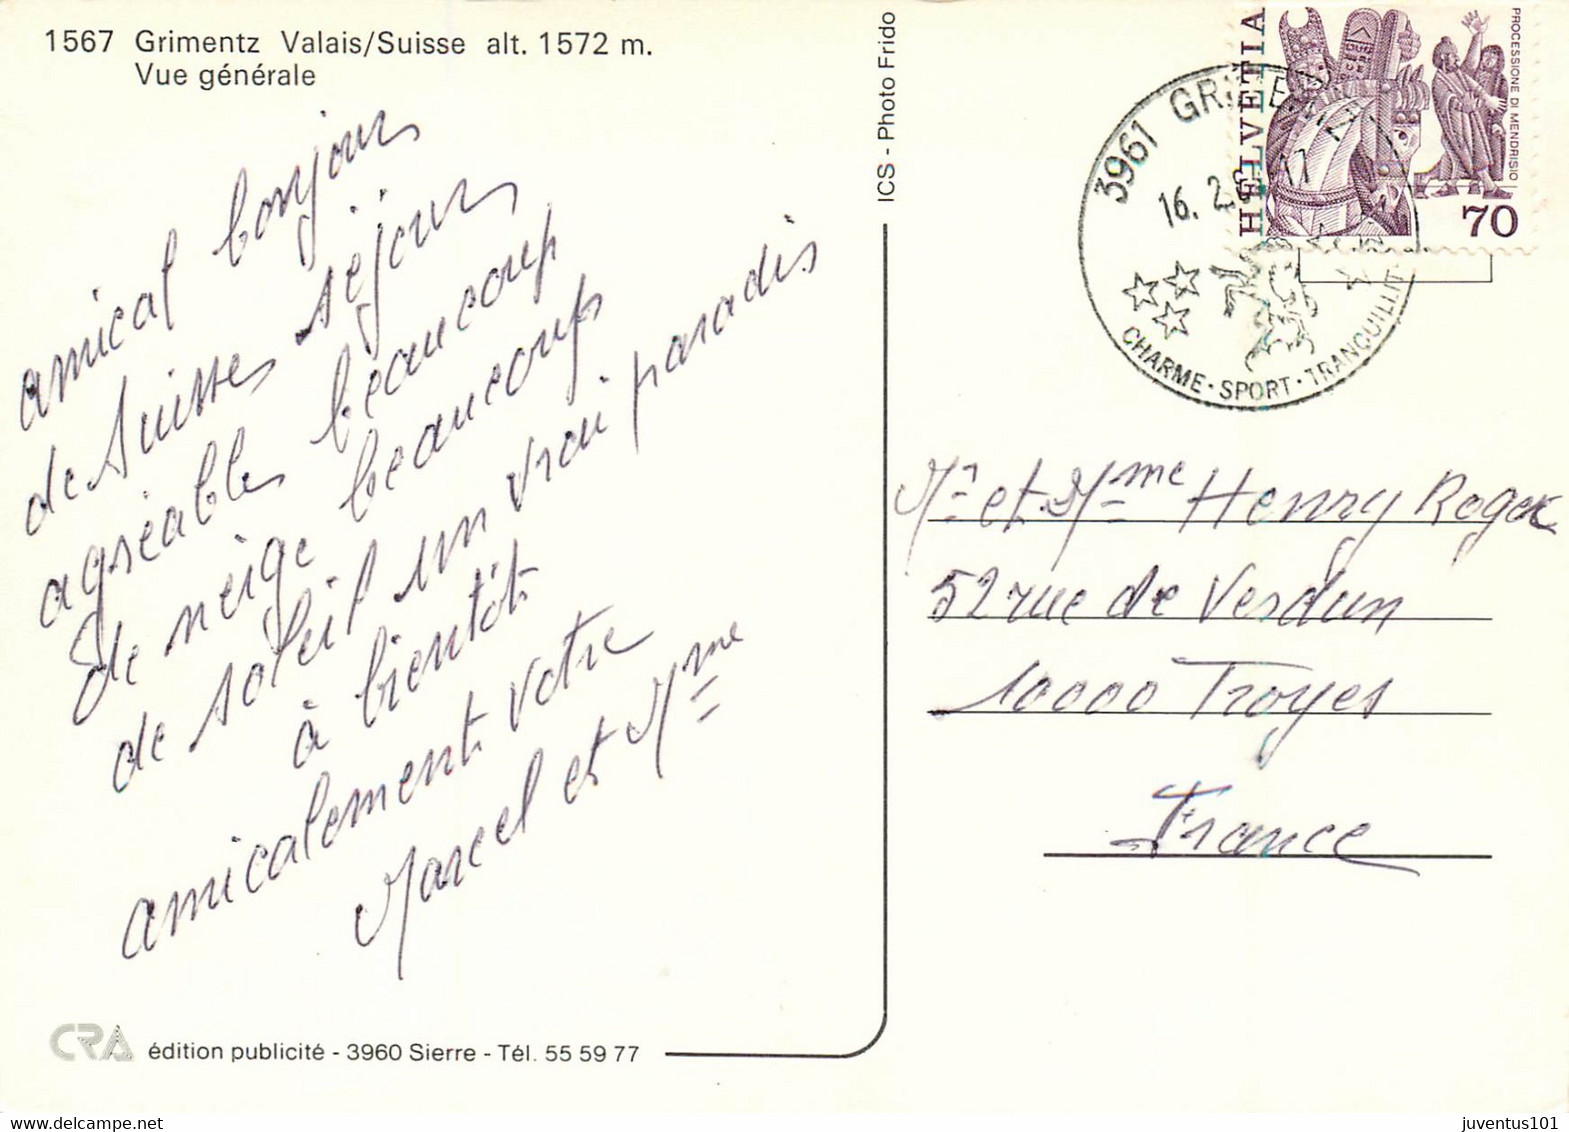 1567 Grimentz Valais/Suisse alt. 1572 m.
Vue générale
amical bonjour
de Suisse séjour
agréable beaucoup
de neige beaucoup
de soleil un vrai paradis
à bientôt
amicalement votre
Marcel et Mme
CRA édition publicité - 3960 Sierre - Tél. 55 59 77
ICS - Photo Frido
HELVETIA
PROCESSIONE DI MENDRISIO
70
3961 GRIMENTZ
16. 2.
CHARME · SPORT · TRANQUILLIT
Mr et Mme Henry Roger
52 rue de Verdun
10000 Troyes
France
juventus101